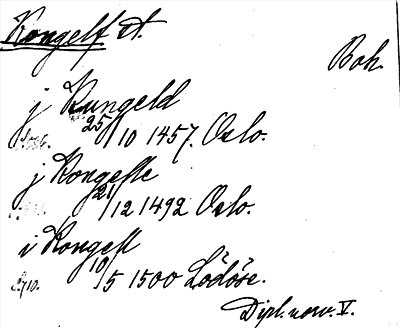 Kongelf st.
Boh.
j Kungeld
25/10 1457. Oslo.
j Kongelle
21/12 1492 Oslo.
i Kongell
10/5 1500 Lödöse.
Dipl. norv. V.